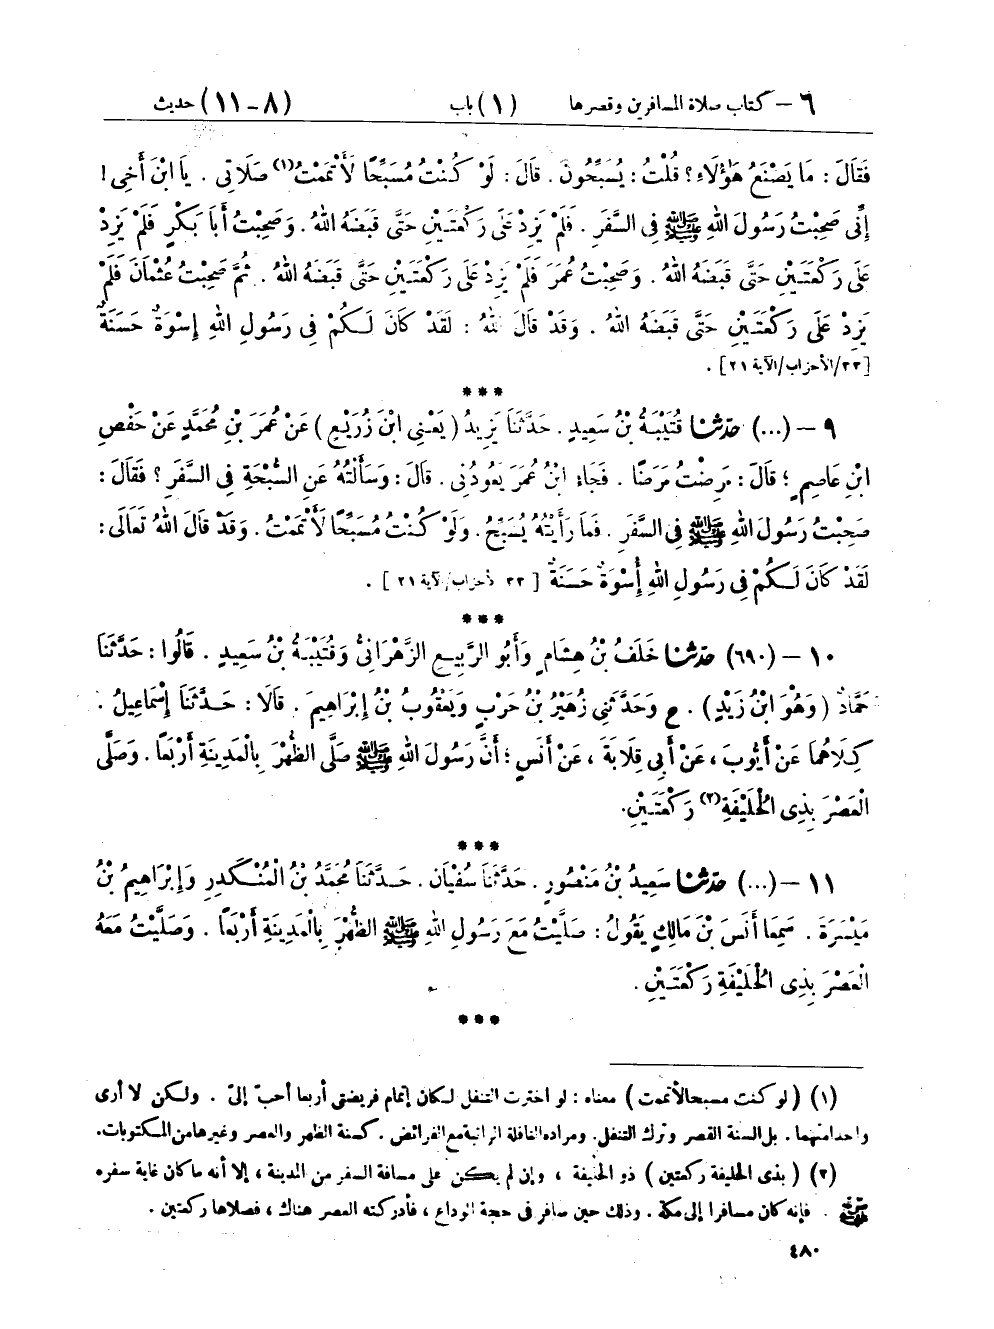 ٦ – كتاب صلاة المسافرين وقصرها (١) باب (٨–١١) حديث
فَقَالَ : مَا يَصْنَعُ هَٰؤُلَاءِ؟ قُلْتُ : يُسَبِّحُونَ . قَالَ : لَوْ كُنْتُ مُسَبِّحًا لَأَتْمَمْتُ(١) صَلَاتِي . يَا ابْنَ أَخِي !
إِنِّي صَحِبْتُ رَسُولَ اللهِ ﷺ فِي السَّفَرِ . فَلَمْ يَزِدْ عَلَى رَكْعَتَيْنِ حَتَّى قَبَضَهُ اللهُ . وَصَحِبْتُ أَبَا بَكْرٍ فَلَمْ يَزِدْ
عَلَى رَكْعَتَيْنِ حَتَّى قَبَضَهُ اللهُ . وَصَحِبْتُ عُمَرَ فَلَمْ يَزِدْ عَلَى رَكْعَتَيْنِ حَتَّى قَبَضَهُ اللهُ . ثُمَّ صَحِبْتُ عُثْمَانَ فَلَمْ
يَزِدْ عَلَى رَكْعَتَيْنِ حَتَّى قَبَضَهُ اللهُ . وَقَدْ قَالَ اللهُ : لَقَدْ كَانَ لَكُمْ فِي رَسُولِ اللهِ إِسْوَةٌ حَسَنَةٌ
[٣٣/الأحزاب/الآية ٢١] .
***
٩ – (...) حَدَّثَنَا قُتَيْبَةُ بْنُ سَعِيدٍ . حَدَّثَنَا يَزِيدُ (يَعْنِي ابْنَ زُرَيْعٍ) عَنْ عُمَرَ بْنِ مُحَمَّدٍ عَنْ حَفْصِ
ابْنِ عَاصِمٍ ؛ قَالَ : مَرِضْتُ مَرَضًا . فَجَاءَ ابْنُ عُمَرَ يَعُودُنِي . قَالَ : وَسَأَلْتُهُ عَنِ السُّبْحَةِ فِي السَّفَرِ ؟ فَقَالَ :
صَحِبْتُ رَسُولَ اللهِ ﷺ فِي السَّفَرِ . فَمَا رَأَيْتُهُ يُسَبِّحُ . وَلَوْ كُنْتُ مُسَبِّحًا لَأَتْمَمْتُ . وَقَدْ قَالَ اللهُ تَعَالَى :
لَقَدْ كَانَ لَكُمْ فِي رَسُولِ اللهِ أُسْوَةٌ حَسَنَةٌ [٣٣ /الأحزاب/الآية ٢١] .
***
١٠ – (٦٩٠) حَدَّثَنَا خَلَفُ بْنُ هِشَامٍ وَأَبُو الرَّبِيعِ الزَّهْرَانِيُّ وَقُتَيْبَةُ بْنُ سَعِيدٍ . قَالُوا : حَدَّثَنَا
حَمَّادٌ (وَهُوَ ابْنُ زَيْدٍ) . ح وَحَدَّثَنِي زُهَيْرُ بْنُ حَرْبٍ وَيَعْقُوبُ بْنُ إِبْرَاهِيمَ . قَالَا : حَدَّثَنَا إِسْمَاعِيلُ .
كِلَاهُمَا عَنْ أَيُّوبَ ، عَنْ أَبِي قِلَابَةَ ، عَنْ أَنَسٍ ؛ أَنَّ رَسُولَ اللهِ ﷺ صَلَّى الظُّهْرَ بِالْمَدِينَةِ أَرْبَعًا . وَصَلَّى
الْعَصْرَ بِذِي الْحُلَيْفَةِ(٢) رَكْعَتَيْنِ.
***
١١ – (...) حَدَّثَنَا سَعِيدُ بْنُ مَنْصُورٍ . حَدَّثَنَا سُفْيَانُ . حَدَّثَنَا مُحَمَّدُ بْنُ الْمُنْكَدِرِ وَإِبْرَاهِيمُ بْنُ
مَيْسَرَةَ . سَمِعَا أَنَسَ بْنَ مَالِكٍ يَقُولُ : صَلَّيْتُ مَعَ رَسُولِ اللهِ ﷺ الظُّهْرَ بِالْمَدِينَةِ أَرْبَعًا . وَصَلَّيْتُ مَعَهُ
الْعَصْرَ بِذِي الْحُلَيْفَةِ رَكْعَتَيْنِ .
***
(١) (لو كنت مسبحا لأتممت) معناه : لو اخترت التنفل لكان إتمام فريضتي أربعا أحبّ إليّ . ولكن لا أرى
واحدا منهما . بل السنة القصر وترك التنفل . ومراده النافلة الراتبة مع الفرائض . كسنة الظهر والعصر وغيرها من المكتوبات.
(٢) (بذى الحليفة ركعتين) ذو الحليفة ، وإن لم يكن على مسافة السفر من المدينة ، إلا أنه ما كان غاية سفره
ﷺ . فإنه كان مسافرا إلى مكة . وذلك حين سافر في حجة الوداع ، فأدركته العصر هناك ، فصلاها ركعتين .
٤٨٠